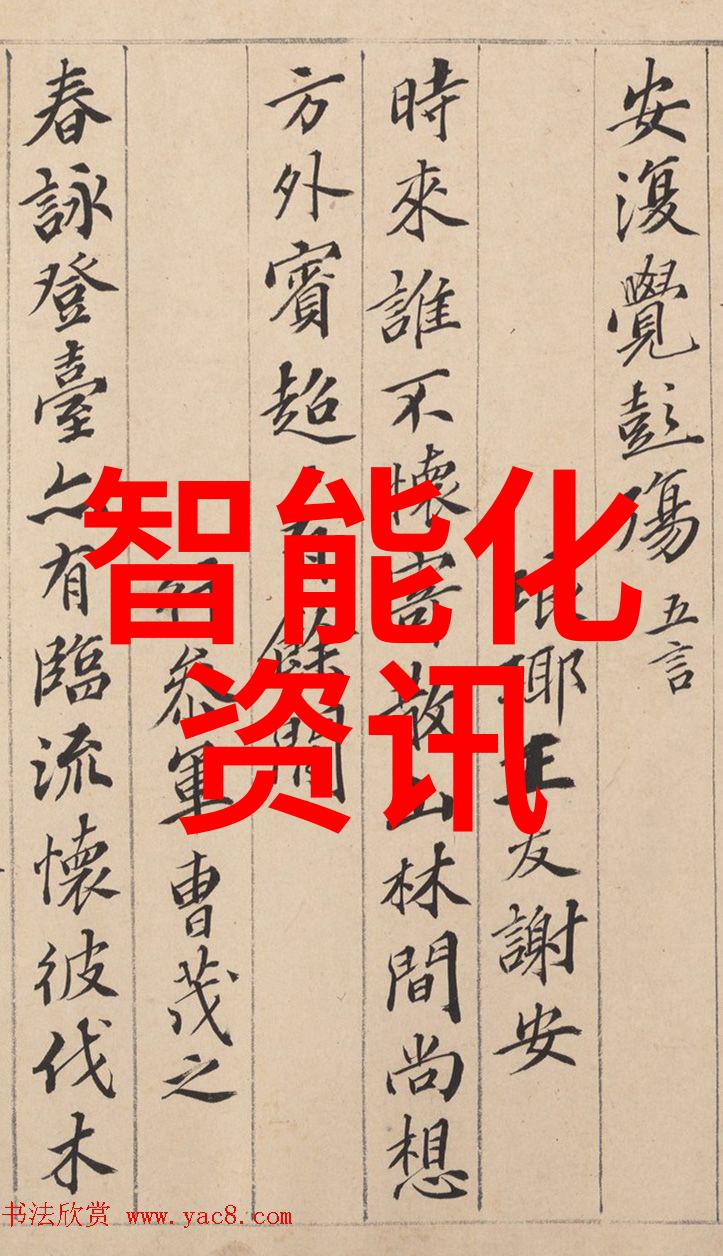 安復覺彭殤 五言
琅琊王友謝安
時來誰不懷寄散山林間尚想
方外賓超有餘間
行參軍曹茂之
春詠登臺亦有臨流懷彼伐木
智能化
资讯
书法欣赏 www.yac8.com